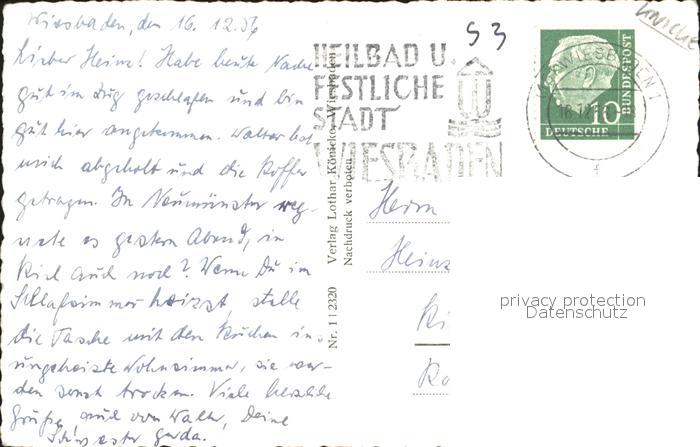 Wiesbaden, den 16. 12. 56
Lieber Heinz! Habe heute Nacht
gut im Zug geschlafen und bin
gut hier angekommen. Walter hat
mich abgeholt und die Koffer
getragen. In Neumünster reg-
nete es gestern Abend, in
Kiel auch noch? Wenn Du im
Schlafzimmer heizst, stelle
die Tasche mit den Kuchen ins
ungeheizte Wohnzimmer, sie wer-
den sonst trocken. Viele herzliche
Grüße, auch von Walter, Deine
Schwester Gerda.
Nr. 1 | 2320 Verlag Lothar Könicke, Wiesbaden
Nachdruck verboten
53
HEILBAD U.
FESTLICHE
STADT
WIESBADEN
WIESBADEN 1
16.12
f
10
DEUTSCHE
BUNDESPOST
Herrn
Heinz
Ki
privacy protection
Datenschutz